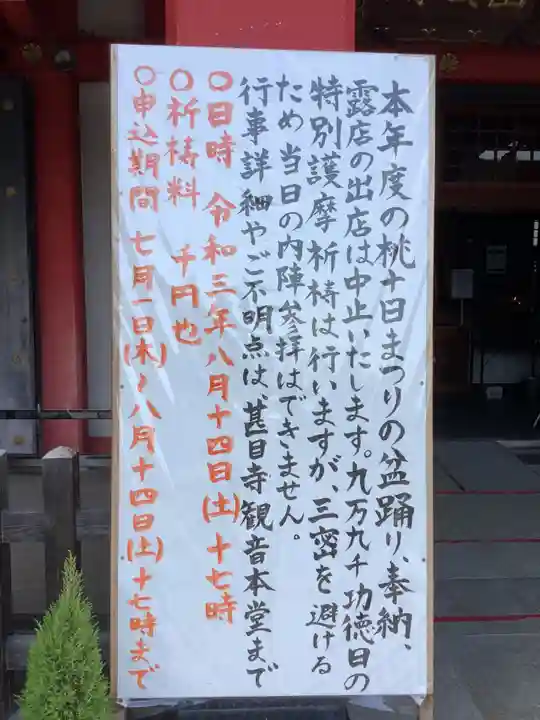 本年度の桃十日まつりの盆踊り、奉納、
露店の出店は中止いたします。九万九千功徳日の
特別護摩祈祷は行いますが、三密を避ける
ため当日の内陣参拝はできません。
行事詳細やご不明点は、甚目寺観音本堂まで
○日時 令和三年八月十四日(土)十七時
○祈祷料 千円也
○申込期間 七月一日(木)〜八月十四日(土)十七時まで